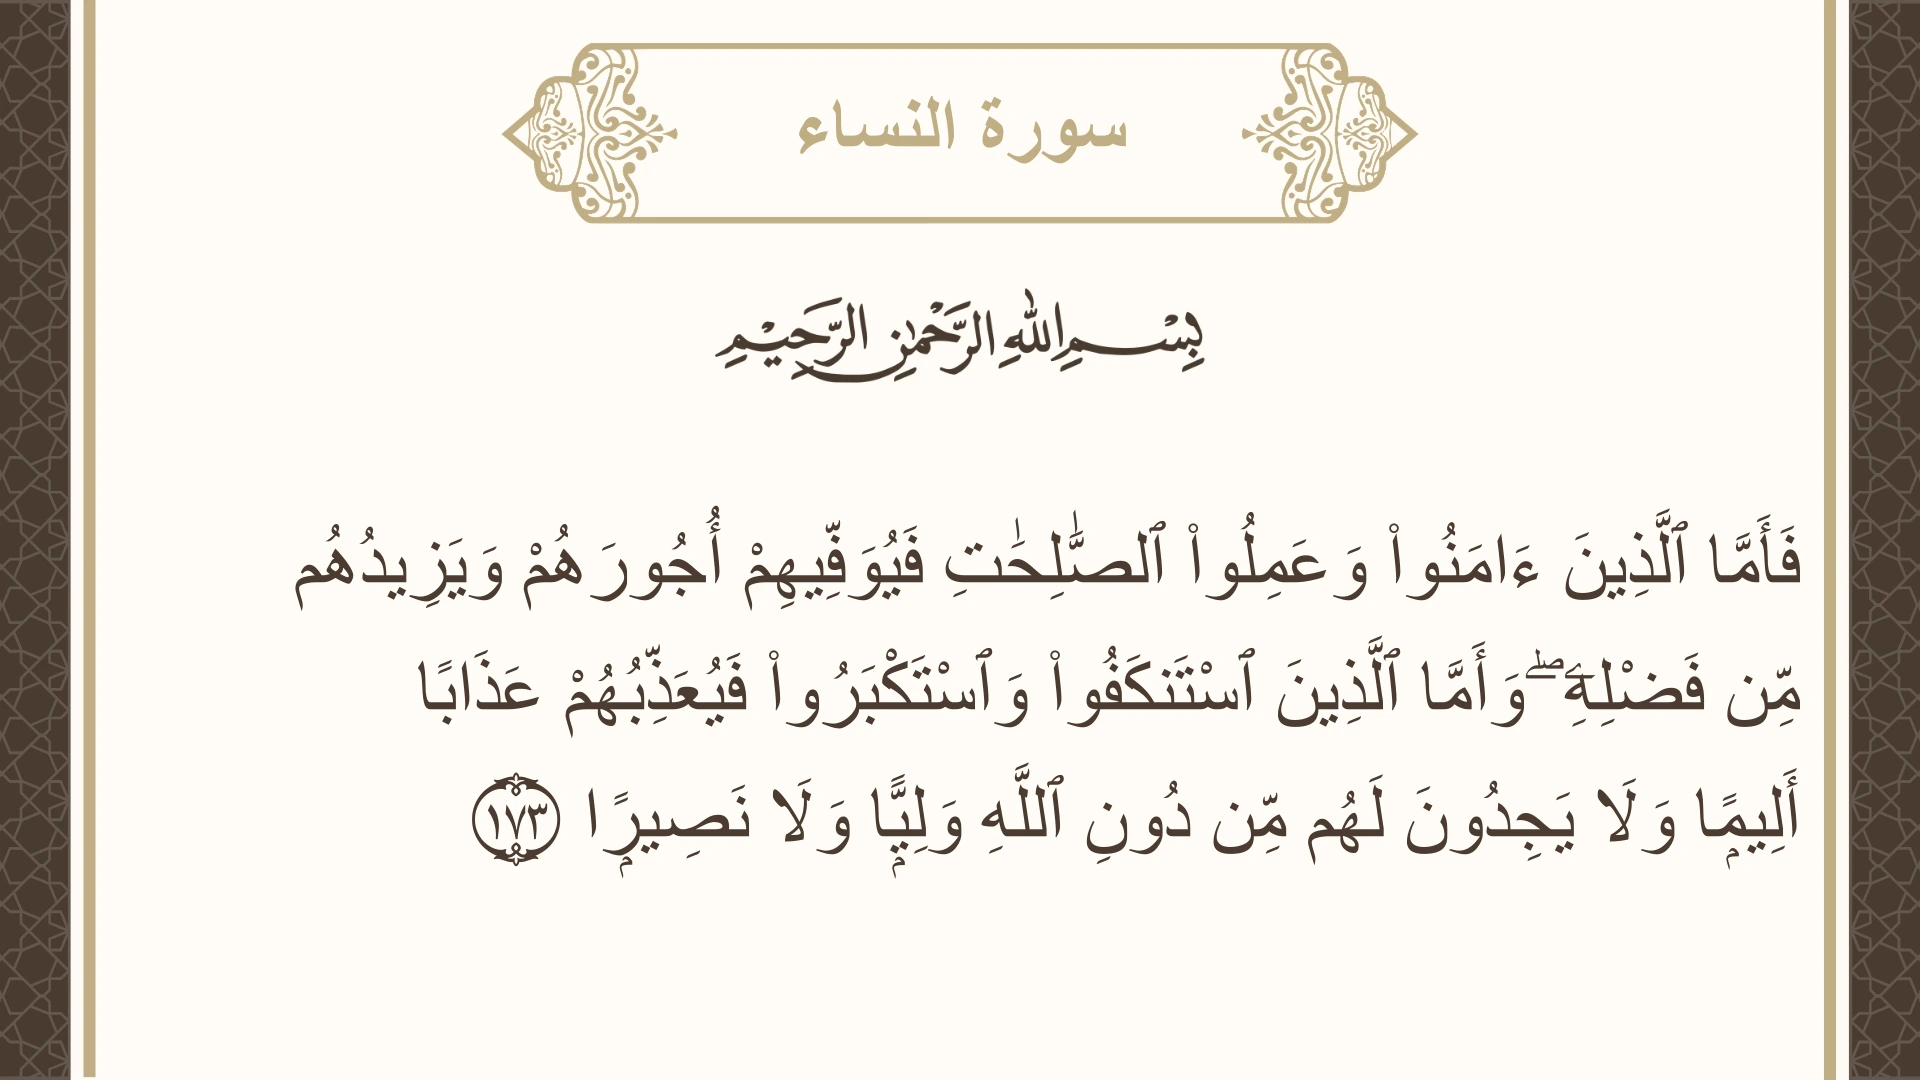 سورة النساء
بِسْمِ اللهِ الرَّحْمٰنِ الرَّحِيْمِ
فَأَمَّا ٱلَّذِينَ ءَامَنُوا۟ وَعَمِلُوا۟ ٱلصَّٰلِحَٰتِ فَيُوَفِّيهِمْ أُجُورَهُمْ وَيَزِيدُهُم
مِّن فَضْلِهِۦ ۖ وَأَمَّا ٱلَّذِينَ ٱسْتَنكَفُوا۟ وَٱسْتَكْبَرُوا۟ فَيُعَذِّبُهُمْ عَذَابًا
أَلِيمًۭا وَلَا يَجِدُونَ لَهُم مِّن دُونِ ٱللَّهِ وَلِيًّۭا وَلَا نَصِيرًۭا ١٧٣